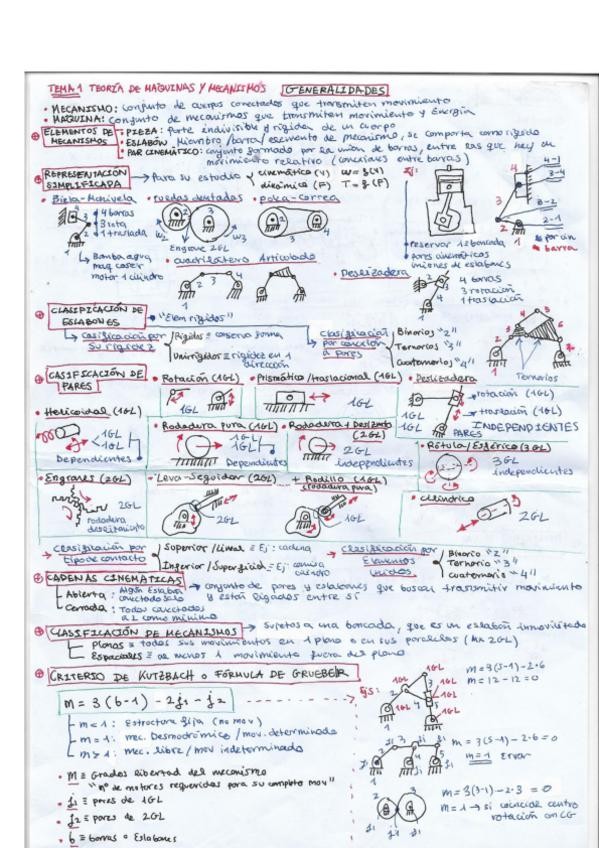 TEMA 1 TEORÍA DE MÁQUINAS Y MECANISMOS GENERALIDADES
• MECANISMO: Conjunto de cuerpos conectados que transmiten movimiento
• MÁQUINA: Conjunto de mecanismos que transmiten movimiento y Energía
ELEMENTOS DE MECANISMOS
• PIEZA: Parte indivisible y rígida de un cuerpo
• ESLABÓN: Miembro/barra/elemento de mecanismo, se comporta como rígido
• PAR CINEMÁTICO: conjunto formado por la unión de barras, entre las que hay un
movimiento relativo (conexiones entre barras)
REPRESENTACIÓN SIMPLIFICADA → Para su estudio
cinemática (V) W = f(V)
dinámica (F) T = f(F)
Ej:
4-1
3-4
3-2
2-1
• Biela-Manivela
4 barras
3 rota
1 traslada
↳ Bomba agua
maq coser
motor 1 cilindro
• ruedas dentadas
W2 W3
Engrane 2GL
• polea-correa
• cuadrilátero Articulado
• reservar 1 bancada
pares cinemáticos
uniones de eslabones
• par
• barra
• Deslizadera
4 barras
3 rotación
1 traslación
CLASIFICACIÓN DE ESLABONES
• "Elem rígidos"
Clasificación por su rigidez
Rígidos = conserva forma
Unirrígidos = rigidez en 1 dirección
Clasificación por conexión a pares
Binarios "2"
Ternarios "3"
Cuaternarios "4"
Ternarios
CASIFICACIÓN DE PARES
• Rotación (1GL)
1GL 1GL
• Prismático/traslacional (1GL)
1GL
• Deslizadera
rotación (1GL)
traslación (1GL)
INDEPENDIENTES
1GL PARES
• Helicoidal (1GL)
1GL
1GL
Dependientes
• Rodadura pura (1GL)
1GL
1GL
Dependientes
• Rodadura + Deslizamto (2GL)
2GL
independientes
• Rótula/Esférico (3GL)
3GL
independientes
• Engranes (2GL)
2GL
rodadura
deslizamiento
• Leva-Seguidor (2GL)
2GL
+ Rodillo (1GL)
(rodadura pura)
1GL
• Cilíndrico
2GL
→ Clasificación por Tipo de contacto
Superior/Lineal = Ej: cadena
Inferior/Superficial = Ej: camisa cilindro
→ Clasificación por Elementos unidos
Binario "2"
Ternario "3"
cuaternario "4"
CADENAS CINEMÁTICAS → conjunto de pares y eslabones que buscan transmitir movimiento
y están ligados entre sí
Abierta: Algún Eslabón conectado solo
Cerrada: Todos conectados a 2 como mínimo
CLASIFICACIÓN DE MECANISMOS → sujetos a una bancada, que es un eslabón inmovilizado
Planos = todos sus movimientos en 1 plano o en sus paralelos (Mx 2GL)
Espaciales = al menos 1 movimiento fuera del plano
CRITERIO DE KUTZBACH o FÓRMULA DE GRUEBLER
m = 3(b-1) - 2j1 - j2
m < 1: Estructura fija (no mov)
m = 1: mec. Desmodrómico / mov. determinado
m > 1: mec. libre / mov indeterminado
• m = Grados libertad del mecanismo
"nº de motores requeridos para su completo mov"
• j1 = pares de 1GL
• j2 = pares de 2GL
• b = barras o Eslabones
Ejs:
1GL 1GL 1GL 1GL
m = 3(5-1) - 2·6
m = 12 - 12 = 0
m = 3(5-1) - 2·6 = 0
m = 1 Error
m = 3(3-1) - 2·3 = 0
m = 1 → si coincide centro
rotación con CG